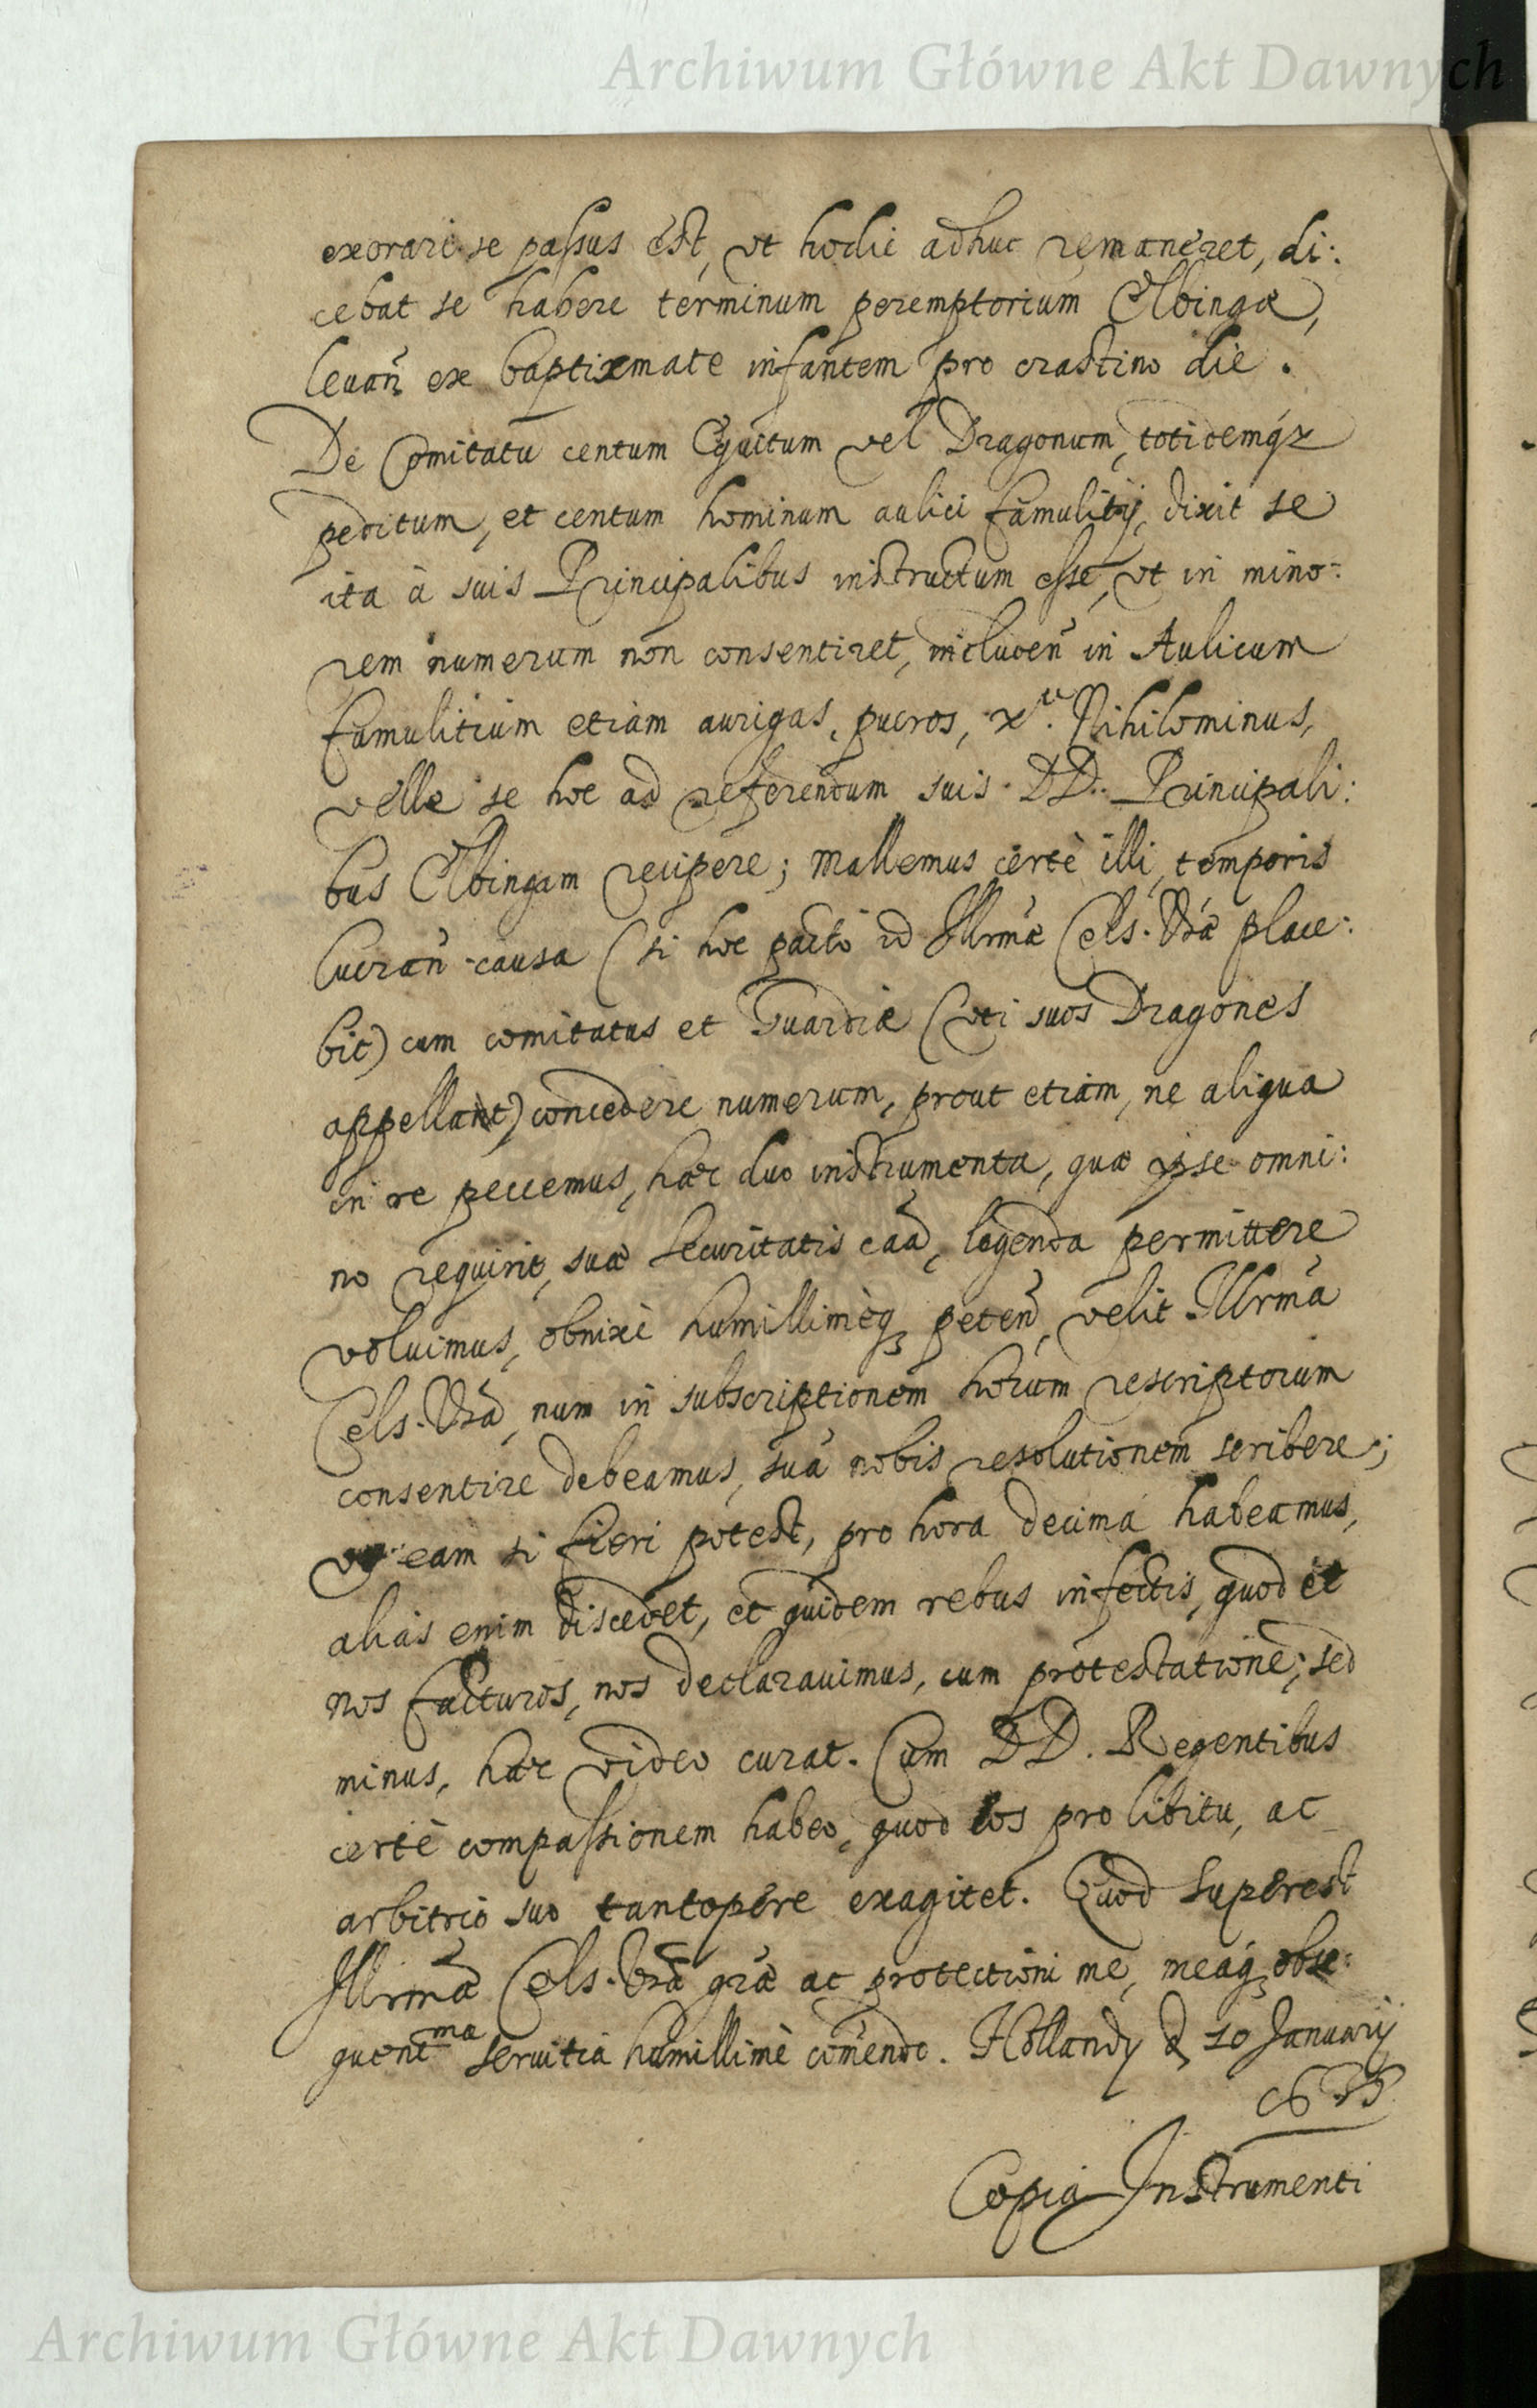 Archiwum Główne Akt Dawnych
exorari se passus est, vt hodie adhuc remaneret, di:
cebat se habere terminum peremptorium Elbingæ,
leuan̄ ex baptizmate infantem pro crastino die.
De Comitatu centum Equitum vel Dragonum, totidemq́z
peditum, et centum hominum aulici famulitij, dixit se
ita à suis Principalibus instructum esse, vt in mino:
rem numerum non consentiret, includen̄ in Aulicum
famulitium etiam aurigas, pueros, Nihilominus,
velle se hoc ad referendum suis DD. Principali:
bus Elbingam recipere; Mallemus certè illi, temporis
lucran̄ causa (si hoc pacto id Illrmæ Cels. Vræ place:
bit) cum comitatus et Guardiæ (vti suos Dragones
appellant) concedere numerum, prout etiam, ne aliqua
in re peccemus, hæc duo instrumenta, quæ ipse omni:
no requirit, suæ securitatis caā, legenda permittere
voluimus, obnixè humillimèq; peten̄, velit Illrmā
Cels. Vrā, num in subscriptionem horum rescriptorum
consentire debeamus, suā nobis resolutionem scribere;
eam si fieri potest, pro hora decima habeamus,
aliàs enim discedet, et quidem rebus infectis, quod et
nos facturos, nos declarauimus, cum protestatione; sed
minus, hæc video curat. Cum DD. Regentibus
certè compassionem habeo, quod eos pro libitu, ac
arbitrio suo tantopere exagitet. Quod superest
Illrmæ Cels. Vræ græ ac protectioni me, meaq́; obse:
quentma seruitia humillimè com̄endo. Hollandy d. 10 January
Copia Instrumenti
Archiwum Główne Akt Dawnych